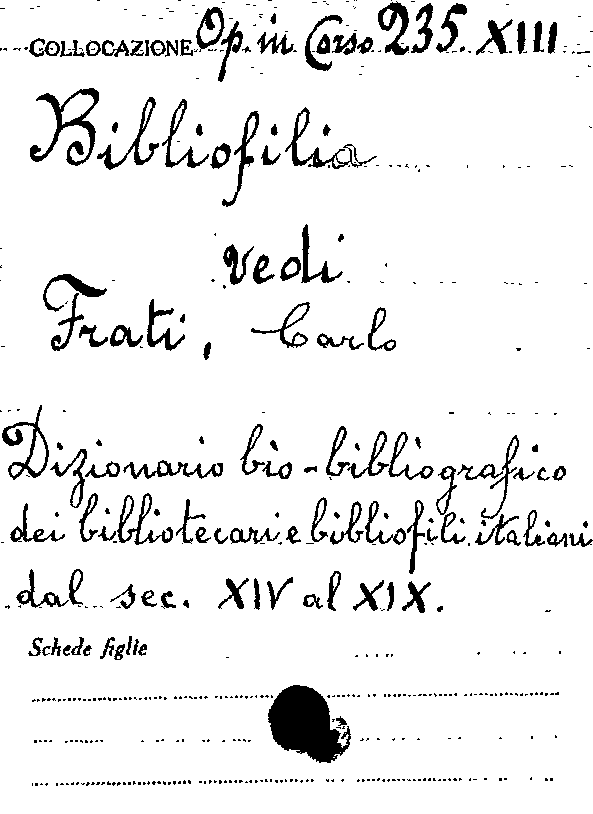 COLLOCAZIONE Op. in Corso 235. XIII
Bibliofilia
vedi
Frati, Carlo
Dizionario bio-bibliografico
dei bibliotecari e bibliofili italiani
dal sec. XIV al XIX.
Schede figlie